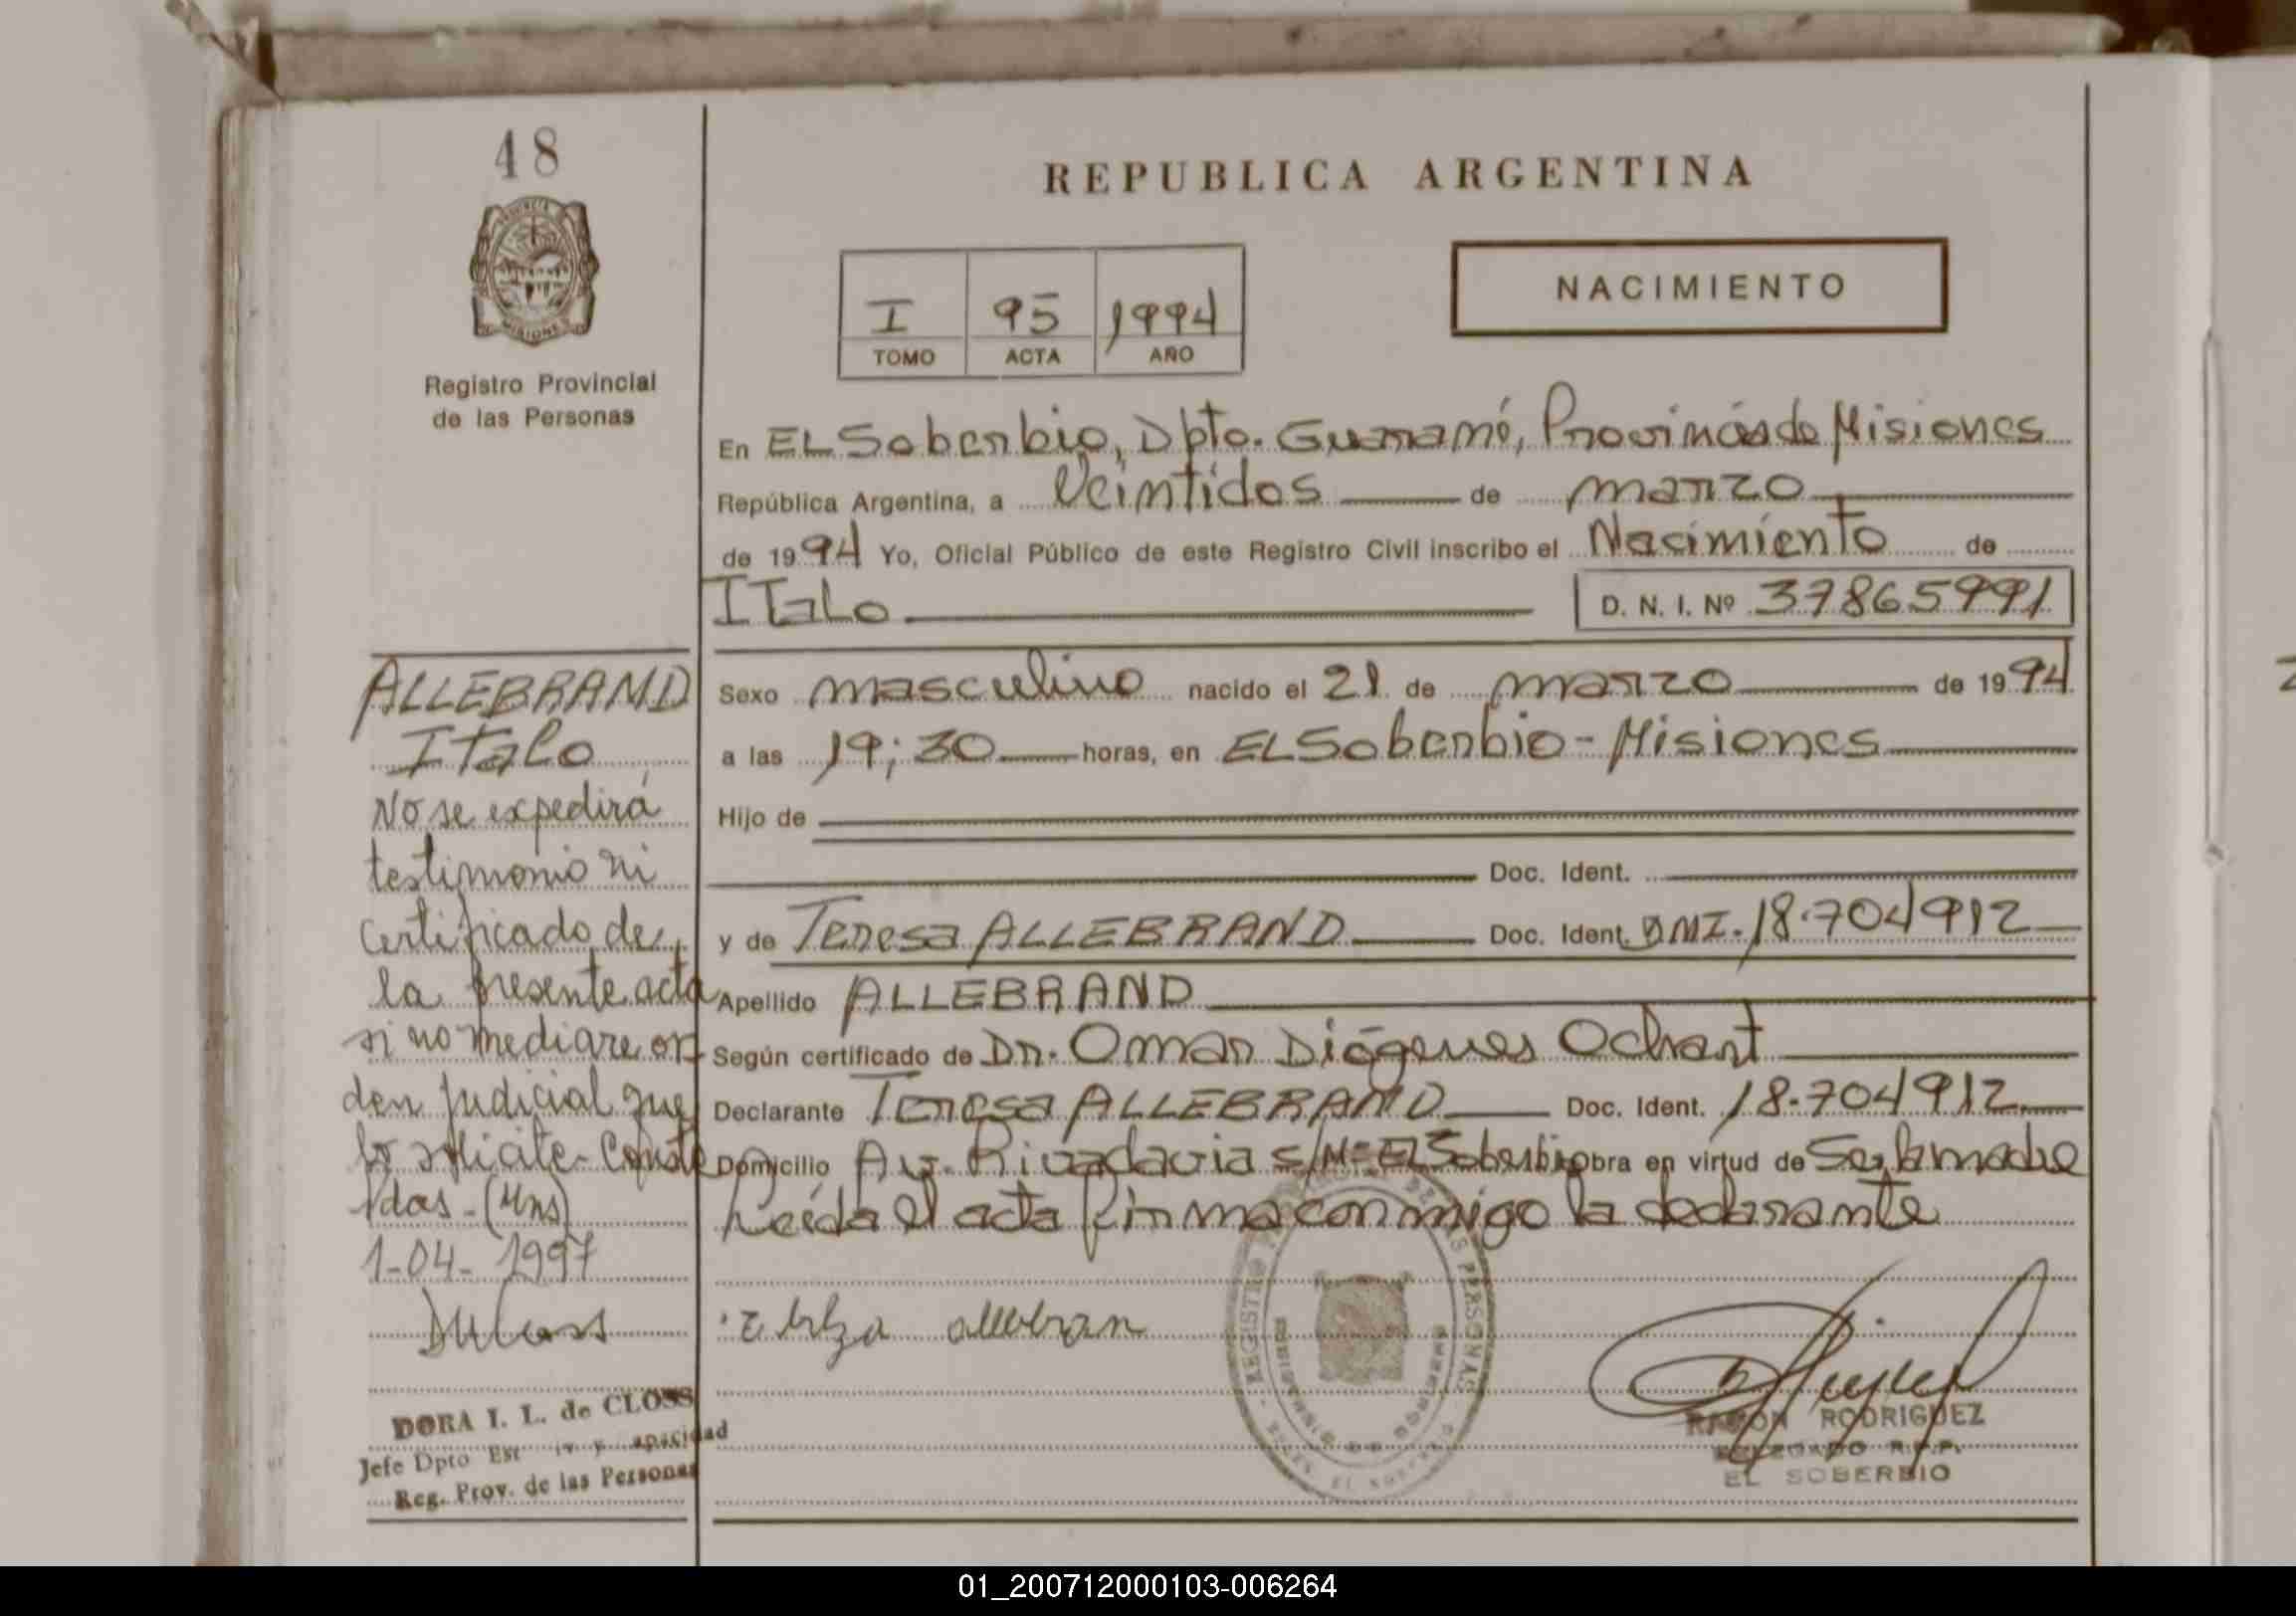 48
REPUBLICA ARGENTINA
PROVINCIA DE
MISIONES
Registro Provincial
de las Personas
I 95 1994
TOMO ACTA AÑO
NACIMIENTO
En EL Soberbio, Dpto. Guaraní, Provincia de Misiones
República Argentina, a Veintidos de marzo
de 1994 Yo, Oficial Público de este Registro Civil inscribo el Nacimiento de
ITalo D. N. I. Nº 37865991
Sexo masculino nacido el 21 de marzo de 1994
a las 19;30 horas, en EL Soberbio - Misiones
Hijo de
Doc. Ident.
y de Teresa ALLEBRAND Doc. Ident. DNI. 18.704912
Apellido ALLEBRAND
Según certificado de Dr. Omar Diógenes Ochart
Declarante Teresa ALLEBRAND Doc. Ident. 18.704912
Domicilio Av. Rivadavia S/Nº EL Soberbio obra en virtud de Ser la madre
Leída el acta firma conmigo la declarante
ALLEBRAND
ITalo
No se expedirá
testimonio ni
certificado de
la presente acta
si no mediare or
den judicial que
lo solicite. Conste
Pdas - (Mns)
1-04-1997
DORA I. L. de CLOSS
Jefe Dpto Est
Reg. Prov. de las Personas
allebran
REGISTRO PROVINCIAL DE LAS PERSONAS
EL SOBERBIO
RAMON RODRIGUEZ
DELEGADO R.P.P.
EL SOBERBIO
01_200712000103-006264